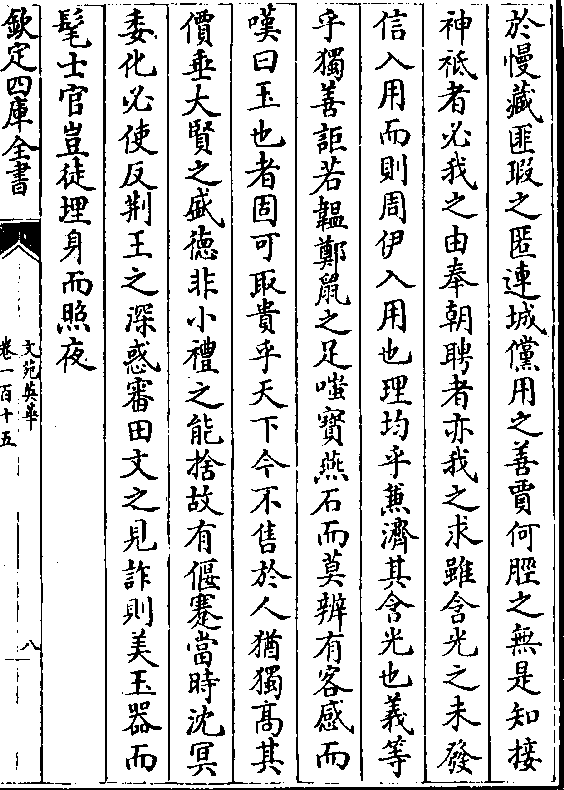 於慢藏匪瑕之匿連城儻用之善賈何脛之無是知接
神祗者必我之由奉朝聘者亦我之求雖含光之未發
信入用而則周伊入用也理均乎蕙濟其含光也義等
乎獨善詎若韞鄭鼠之足嗤寳燕石而莫辨有客感而
嘆曰玉也者固可取貴乎天下今不售於人猶獨髙其
價垂大賢之盛徳非小禮之能捨故有偃蹇當時沈冥
委化必使反荆王之深惑審田文之見詐則美玉器而
髦士官豈徒埋身而照夜
欽定四庫全書
文苑英華
卷一百十五
八